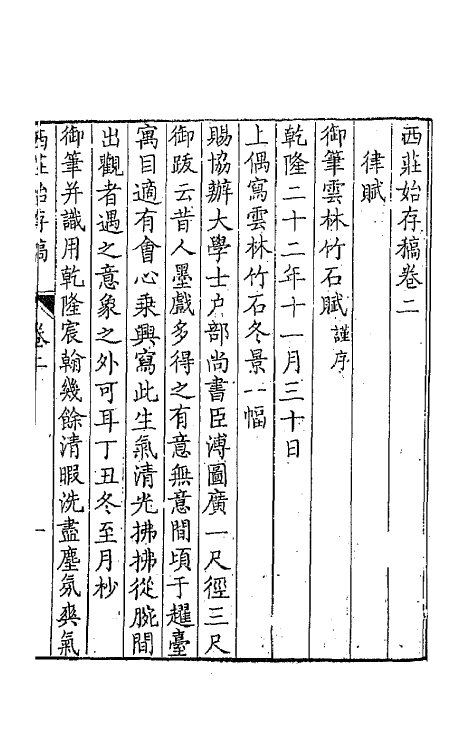 西莊始存稿卷二
律賦
御筆雲林竹石賦 謹序
乾隆二十二年十一月三十日
上偶寫雲林竹石冬景一幅
賜協辦大學士户部尚書臣溥圖廣一尺徑三尺
御跋云昔人墨戲多得之有意無意間頃于趯臺
寓目適有會心乘興寫此生氣清光拂拂從腕間
出觀者遇之意象之外可耳丁丑冬至月杪
御筆并識用乾隆宸翰幾餘清暇洗盡塵氛爽氣
西莊始存稿 卷二 一